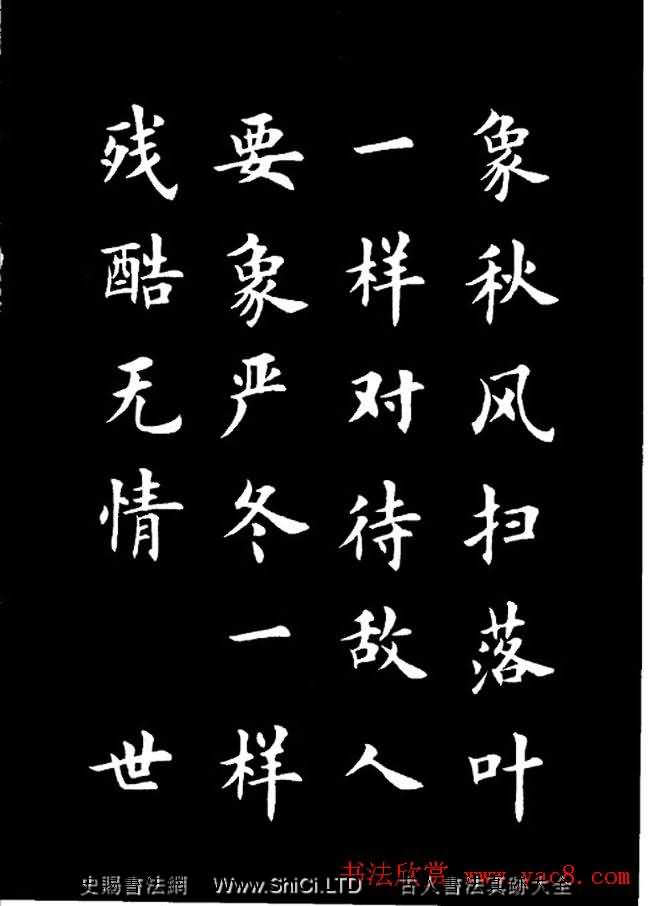 象秋风扫落叶
一样对待敌人
要象严冬一样
残酷无情 世
书法欣赏 www.yac8.com
史賜書法網 Www.ShiCi.LTD 古人書法真跡大全